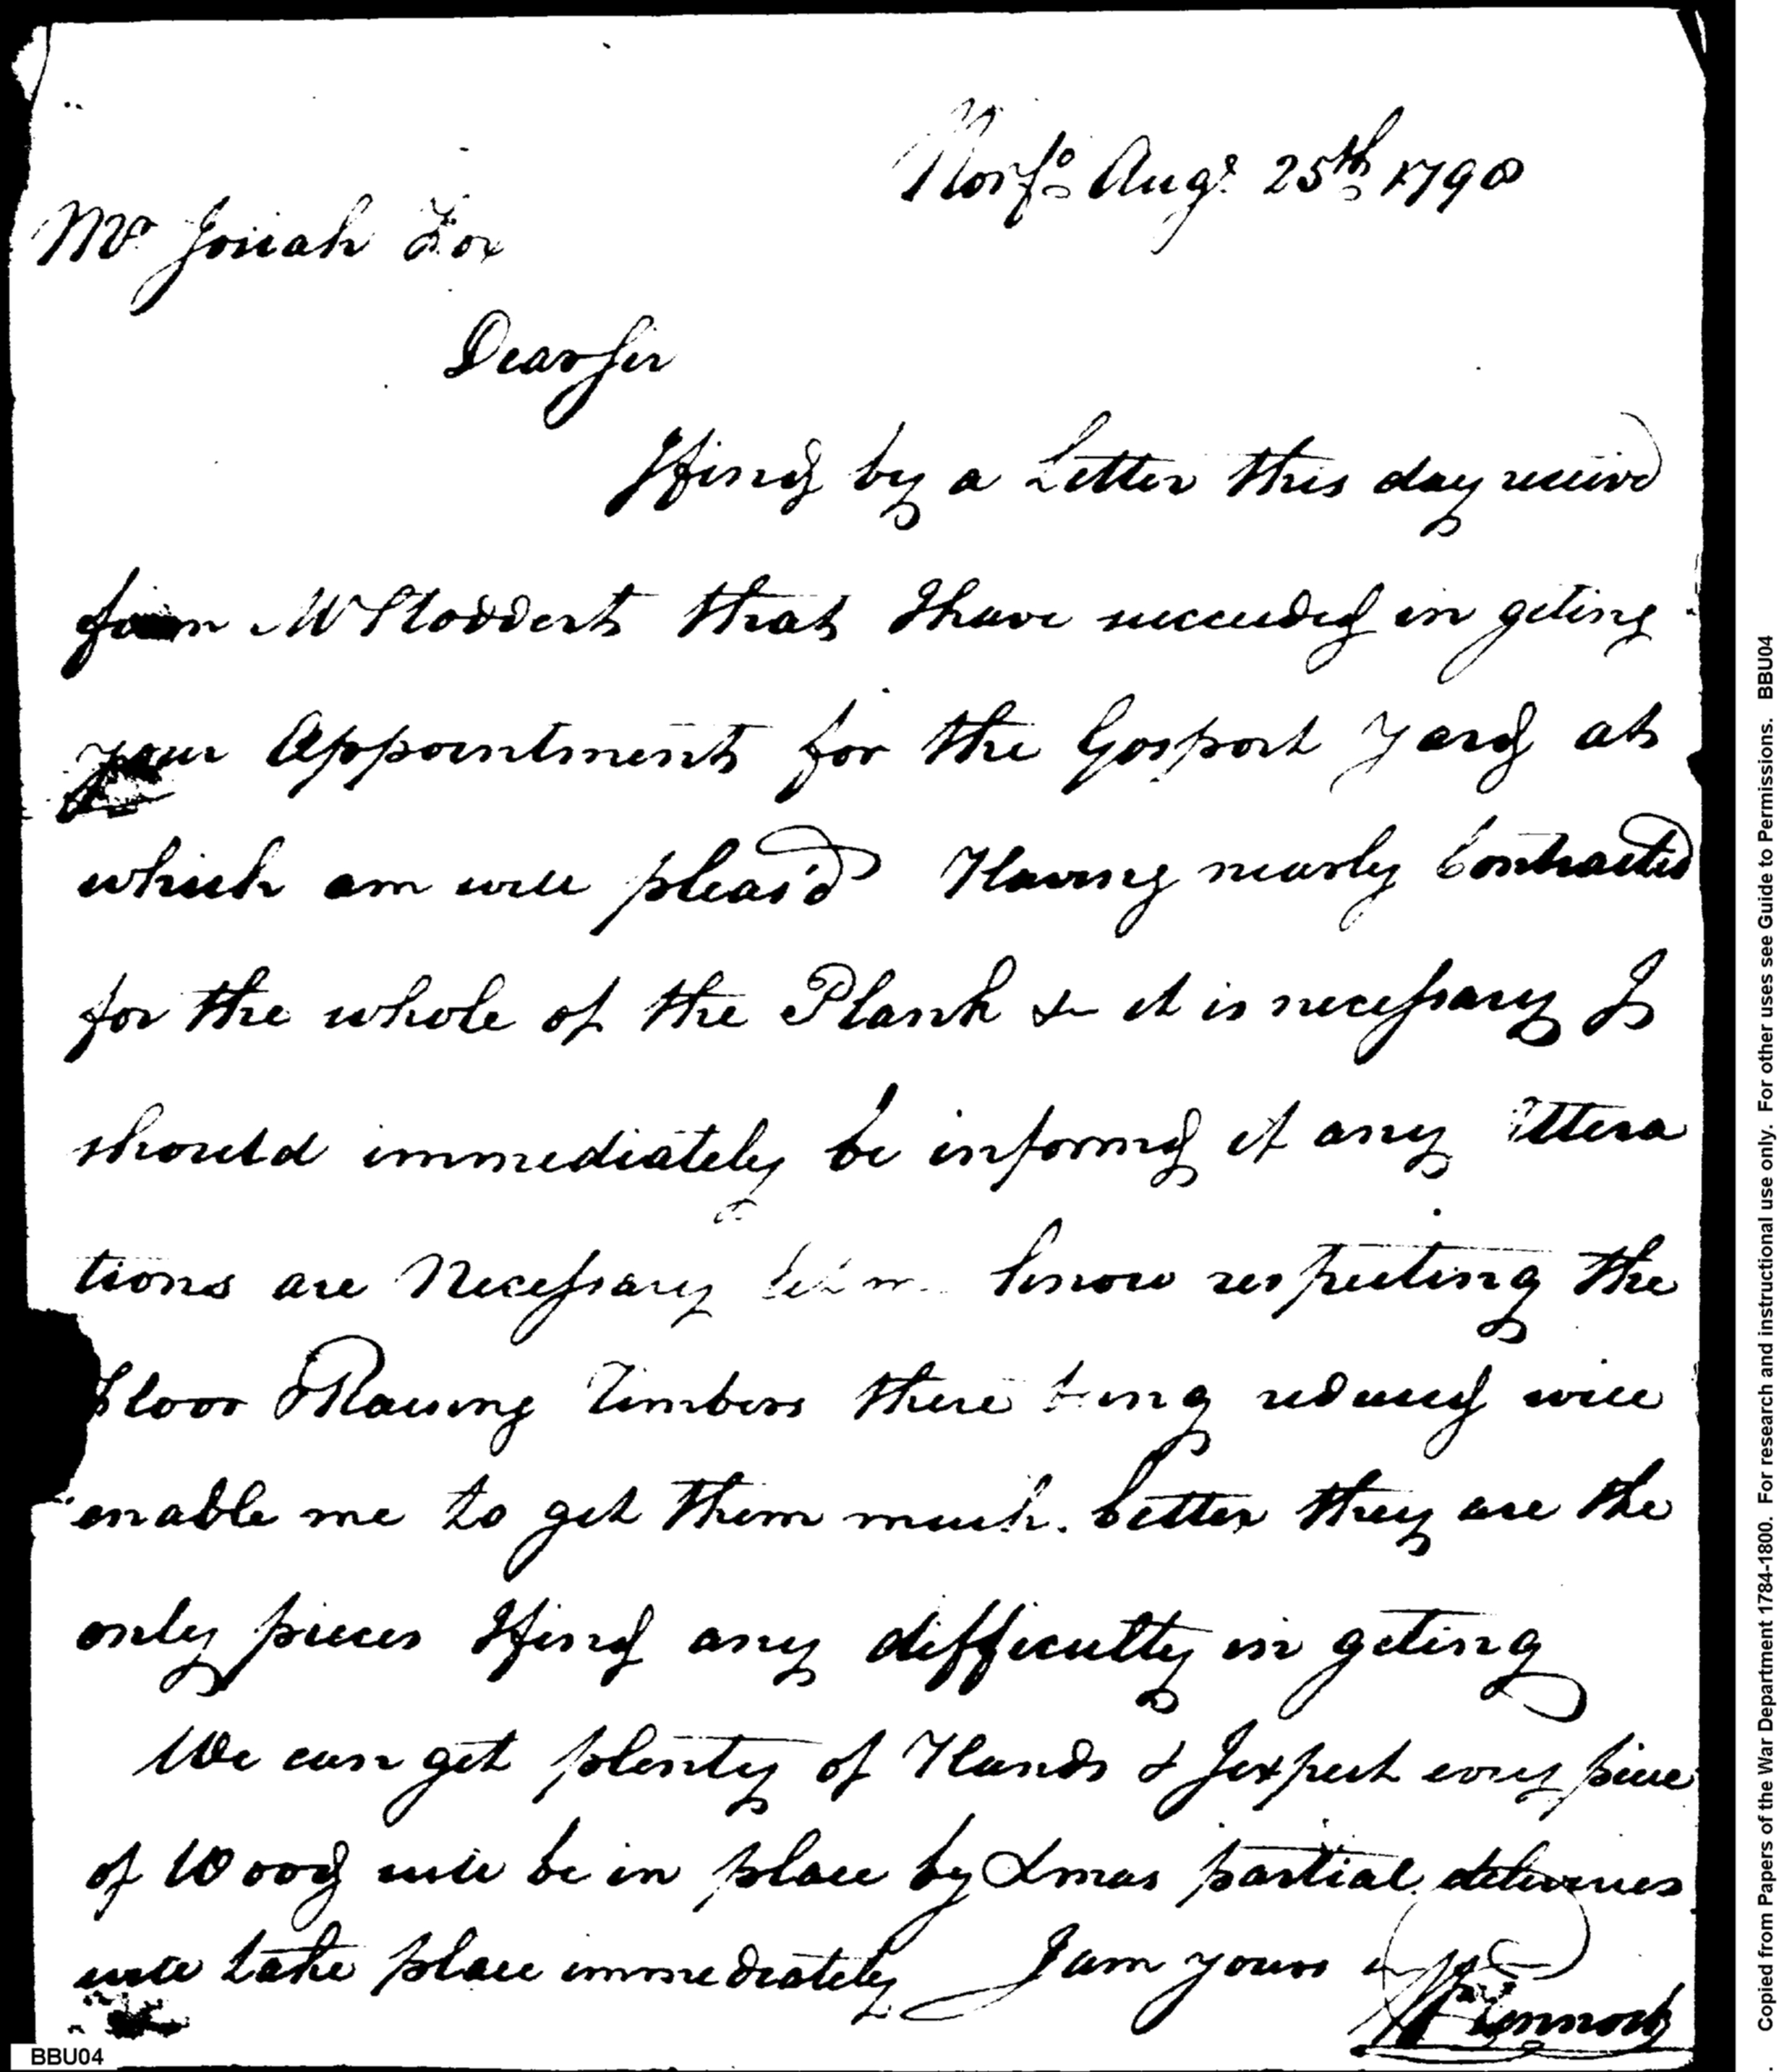 Norfo. Augt. 25th 1798
Mr Josiah Fox
Dear Sir
I find by a Letter this day receivd
from Mr Stoddert that I have succeeded in geting
your Appointment for the Gosport Yard at
which am well pleas'd Having nearly Contracted
for the whole of the Plank & it is necessary I
should immediately be informd if any Altera
tions are Necessary let me know respecting the
Floor & Raising Timbers there being reducd will
enable me to get them much better they are the
only pieces I find any difficulty in geting
We can get plenty of Hands & I expect every piece
of Wood will be in place by Xmas partial deliveries
will take place immediately I am yours
Wm Pennock
BBU04
Copied from Papers of the War Department 1784-1800. For research and instructional use only. For other uses see Guide to Permissions. BBU04